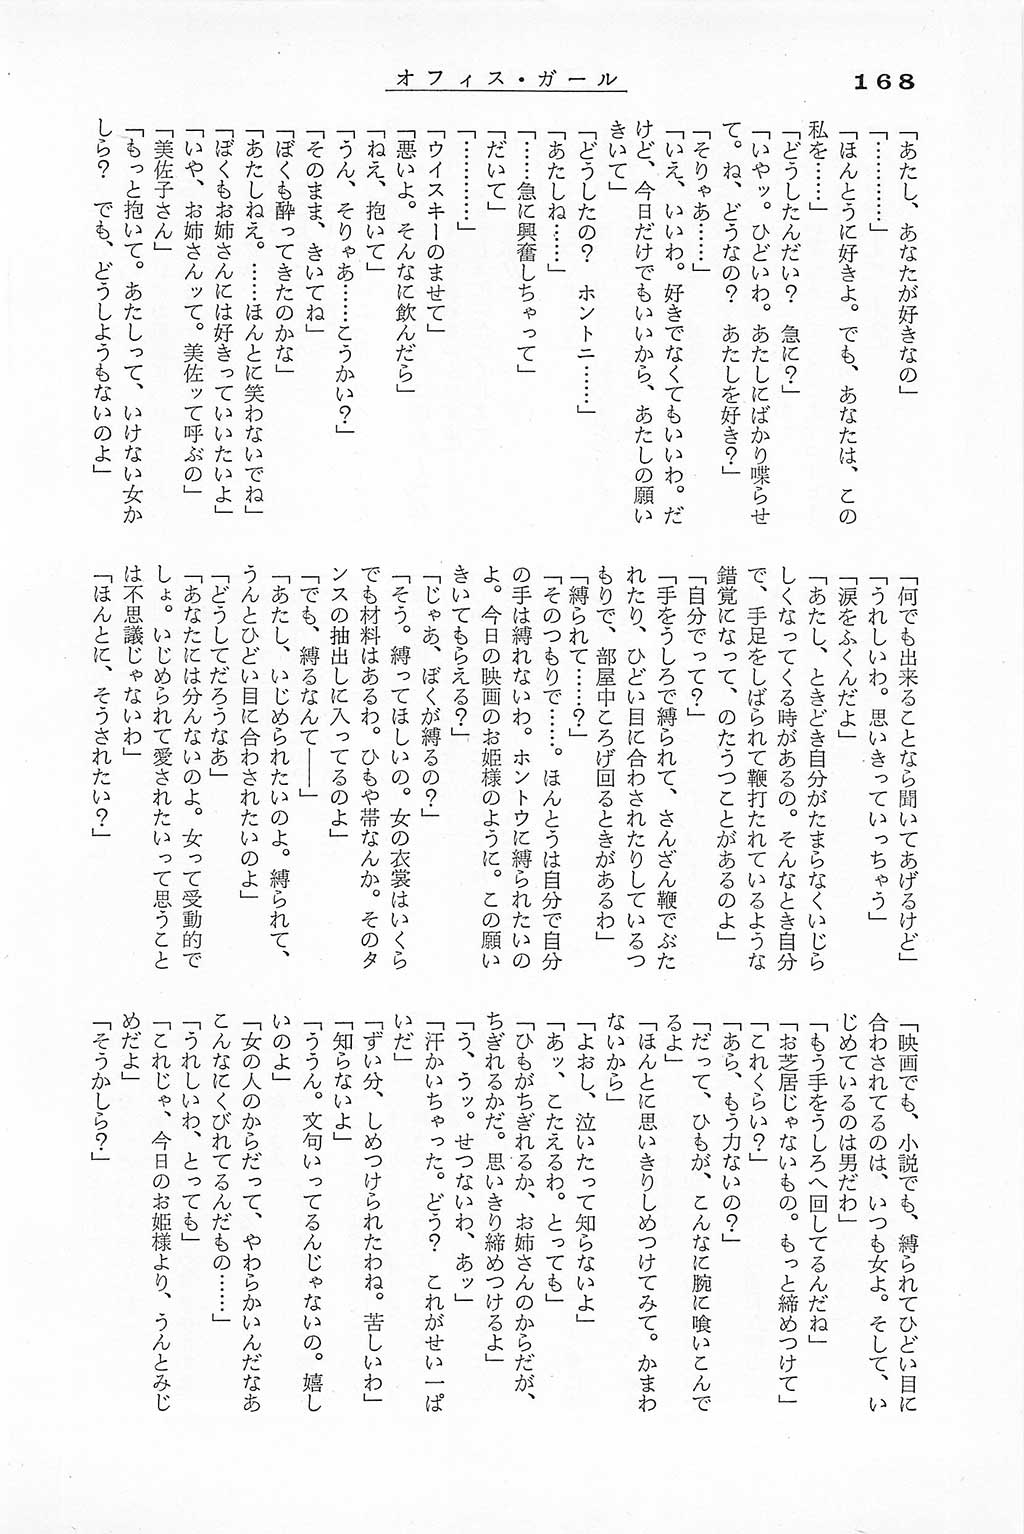 オフィス・ガール
168
「あたし、あなたが好きなの」
「…………」
「ほんとうに好きよ。でも、あなたは、この
私を……」
「どうしたんだい？　急に？」
「いやッ。ひどいわ。あたしにばかり喋らせ
て。ね、どうなの？　あたしを好き？」
「そりゃあ……」
「いえ、いいわ。好きでなくてもいいわ。だ
けど、今日だけでもいいから、あたしの願い
きいて」
「どうしたの？　ホントニ……」
「あたしね……」
「……急に興奮しちゃって」
「だいて」
「…………」
「ウイスキーのませて」
「悪いよ。そんなに飲んだら」
「ねえ、抱いて」
「うん、そりゃあ……こうかい？」
「そのまま、きいてね」
「ぼくも酔ってきたのかな」
「あたしねえ。……ほんとに笑わないでね」
「ぼくもお姉さんには好きっていいたいよ」
「いや、お姉さんッて。美佐ッて呼ぶの」
「美佐子さん」
「もっと抱いて。あたしって、いけない女か
しら？　でも、どうしようもないのよ」
「何でも出来ることなら聞いてあげるけど」
「うれしいわ。思いきっていっちゃう」
「涙をふくんだよ」
「あたし、ときどき自分がたまらなくいじら
しくなってくる時があるの。そんなとき自分
で、手足をしばられて鞭打たれているような
錯覚になって、のたうつことがあるのよ」
「自分でって？」
「手をうしろで縛られて、さんざん鞭でぶた
れたり、ひどい目に合わされたりしているつ
もりで、部屋中ころげ回るときがあるわ」
「縛られて……？」
「そのつもりで……。ほんとうは自分で自分
の手は縛れないわ。ホントウに縛られたいの
よ。今日の映画のお姫様のように。この願い
きいてもらえる？」
「じゃあ、ぼくが縛るの？」
「そう。縛ってほしいの。女の衣裳はいくら
でも材料はあるわ。ひもや帯なんか。そのタ
ンスの抽出しに入ってるのよ」
「でも、縛るなんて――」
「あたし、いじめられたいのよ。縛られて、
うんとひどい目に合わされたいのよ」
「どうしてだろうなあ」
「あなたには分んないのよ。女って受動的で
しょ。いじめられて愛されたいって思うこと
は不思議じゃないわ」
「ほんとに、そうされたい？」
「映画でも、小説でも、縛られてひどい目に
合わされてるのは、いつも女よ。そして、い
じめているのは男だわ」
「もう手をうしろへ回してるんだね」
「お芝居じゃないもの。もっと締めつけて」
「これくらい？」
「あら、もう力ないの？」
「だって、ひもが、こんなに腕に喰いこんで
るよ」
「ほんとに思いきりしめつけてみて。かまわ
ないから」
「よおし、泣いたって知らないよ」
「あッ、こたえるわ。とっても」
「ひもがちぎれるか、お姉さんのからだが、
ちぎれるかだ。思いきり締めつけるよ」
「う、うッ。せつないわ、あッ」
「汗かいちゃった。どう？　これがせい一ぱ
いだ」
「ずい分、しめつけられたわね。苦しいわ」
「知らないよ」
「ううん。文句いってるんじゃないの。嬉し
いのよ」
「女の人のからだって、やわらかいんだなあ
こんなにくびれてるんだもの……」
「うれしいわ、とっても」
「これじゃ、今日のお姫様より、うんとみじ
めだよ」
「そうかしら？」